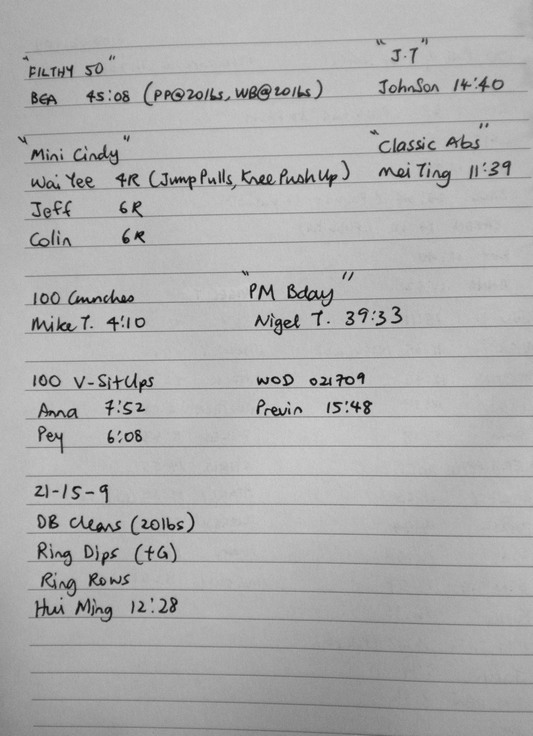 "FILTHY 50"
BEA 45:08 (PP@20lbs, WB@20lbs)
"J.T"
Johnson 14:40
"Mini Cindy"
Wai Yee 4R (Jump Pulls, Knee Push Up)
Jeff 6R
Colin 6R
"Classic Abs"
Mei Ting 11:39
100 Crunches
Mike T. 4:10
"PM Bday"
Nigel T. 39:33
100 V-Sit Ups
Anna 7:52
Pey 6:08
WOD 021709
Previn 15:48
21-15-9
DB Cleans (20lbs)
Ring Dips (+G)
Ring Rows
Hui Ming 12:28